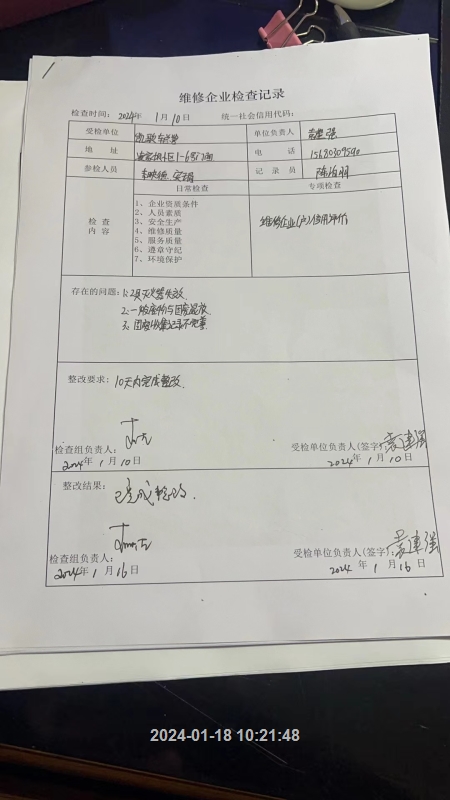 维修企业检查记录
检查时间: 2024年 1月10日 统一社会信用代码:
受检单位 单位负责人 袁建强
地 址 电 话 15680309590
参检人员 记 录 员
日常检查 专项检查
检 查
内 容
1、企业资质条件
2、人员素质
3、安全生产
4、维修质量
5、服务质量
6、遵章守纪
7、环境保护
维修企业(户)信用评价
存在的问题: 1、2具灭火器失效.
2、一般废物与固废混放.
3、固废收集记录不完善.
整改要求: 10天内完成整改.
检查组负责人: 受检单位负责人(签字): 袁建强
2024年 1月10日 2024年 1月10日
整改结果: 已完成整改.
检查组负责人: 受检单位负责人(签字): 袁建强
2024年 1月16日 2024年 1月16日
2024-01-18 10:21:48